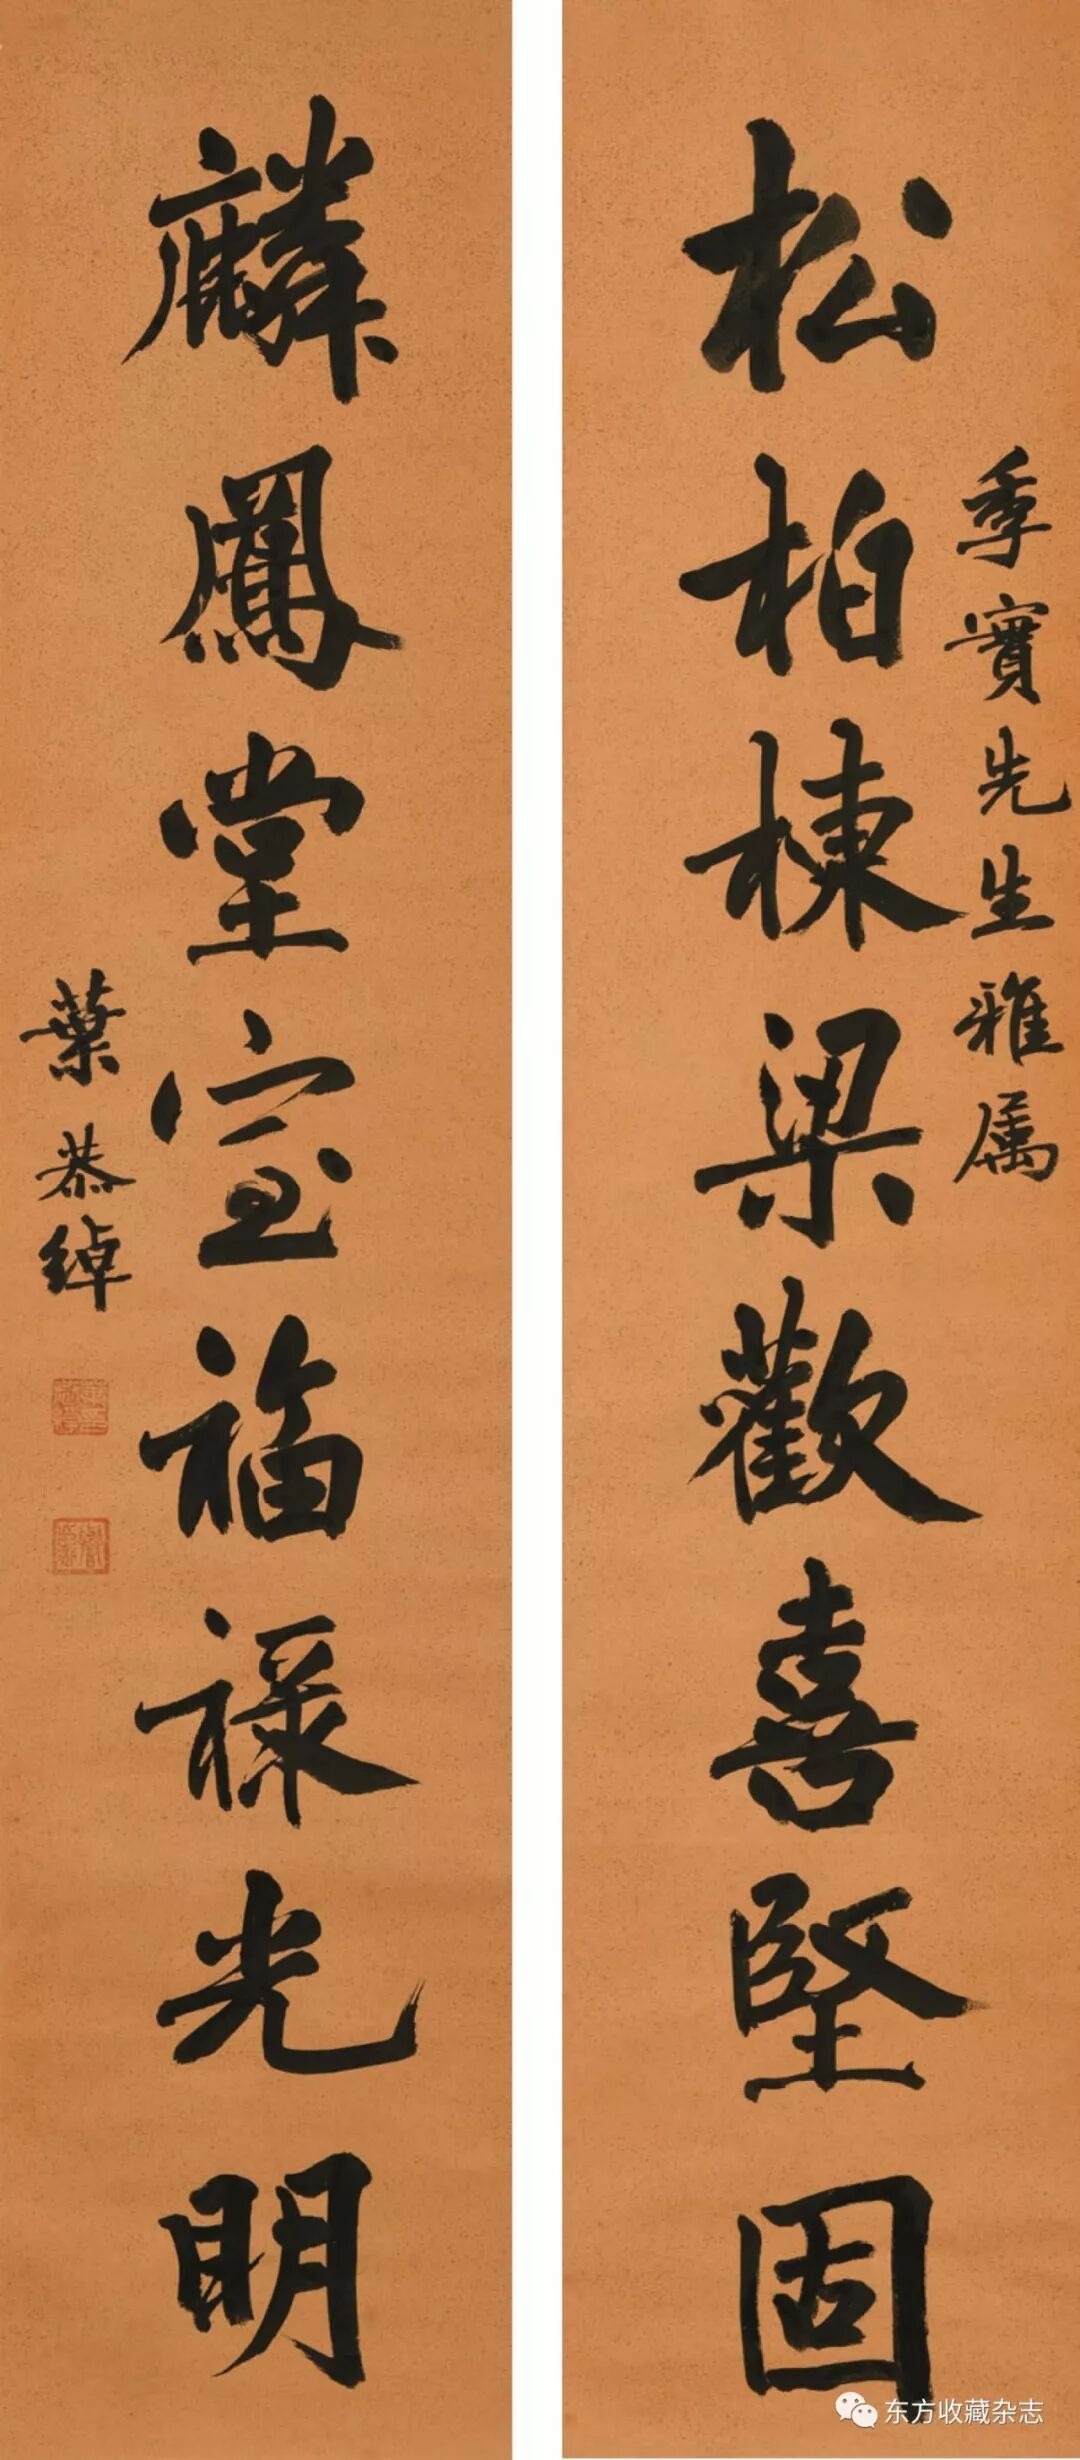 季實先生雅属
松柏棟梁歡喜堅固
麟鳳堂室福禄光明
葉恭綽
东方收藏杂志